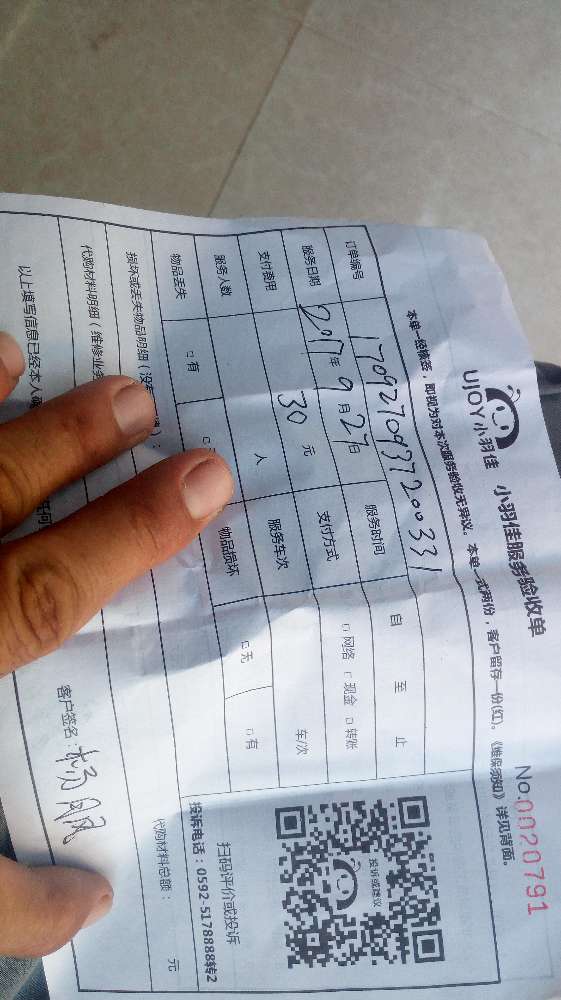 UJOY小羽佳 小羽佳服务验收单 No:0020791
本单一经核签，即视为对本次服务验收无异议。本单一式两份，客户留存一份(红)。《维保须知》详见背面。
订单编号 1709270937200331
服务日期 2017年9月27日 服务时间 自 至 止
支付费用 30元 支付方式 □网络 □现金 □转账
服务人数 人 服务车次 车/次
物品丢失 □有 □ 物品损坏 □无 □有
损坏或丢失物品明细（没
代购材料明细（维修业务
代购材料总额： 元
以上填写信息已经本人确
客户签名：杨
投诉或建议
扫码评价或投诉
投诉电话：0592-5178888转2